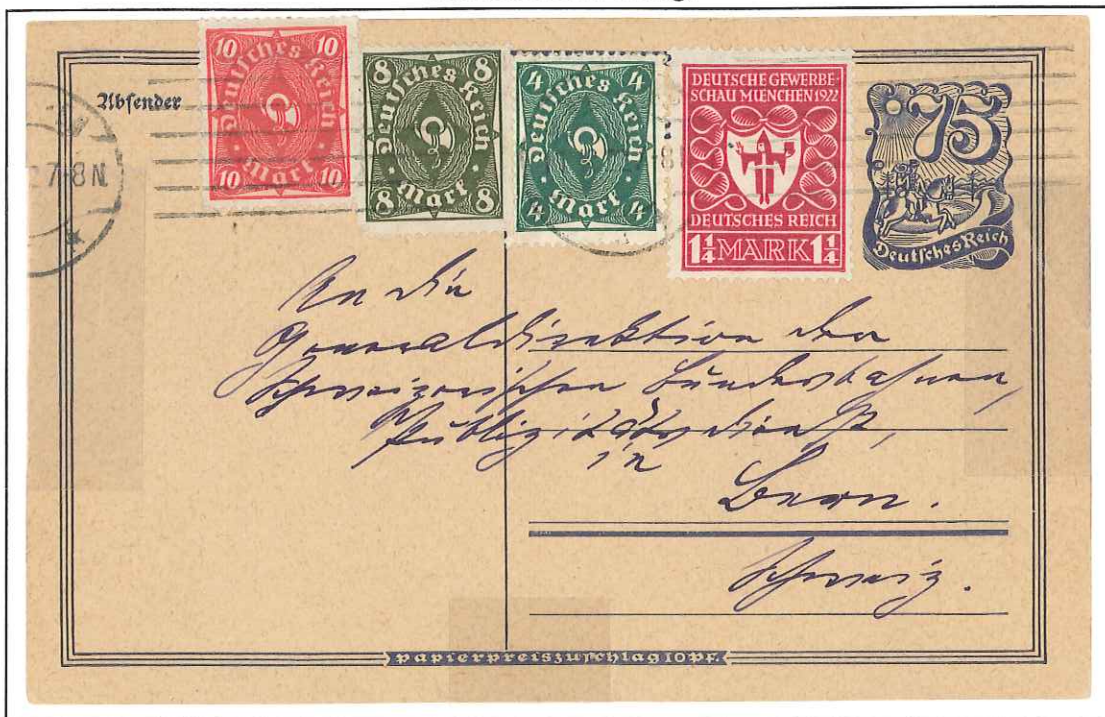 Absender
10 10
Deutsches Reich
Mark
10 10
8 8
Deutsches Reich
Mark
8 8
4 4
Deutsches Reich
Mark
4 4
DEUTSCHE GEWERBE-
SCHAU MUENCHEN 1922
DEUTSCHES REICH
1 1/4 MARK 1 1/4
75
Deutsches Reich
7-8N
An die
Generaldirektion der
Schweizerischen Bundesbahnen,
Publizitätsdienst,
in
Bern.
Schweiz.
Papierpreiszuschlag 10 Pf.